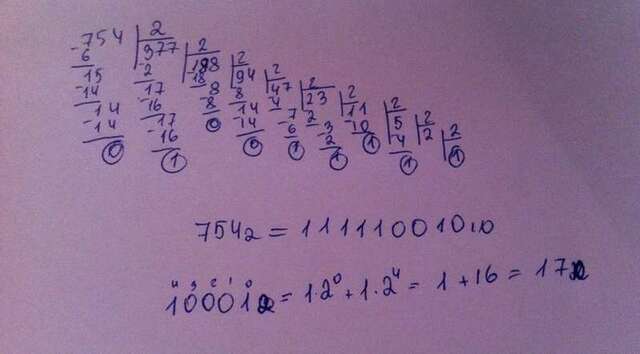 -754 2
6 377 2
15 -2 -188 2
-14 17 18 94 2
14 -16 8 8 47 2
-14 17 -8 14 -4 23 2
0 -16 0 -14 7 2 11 2
1 0 -6 3 10 5 2
1 -2 1 -4 2 2
1 1 0
754₂ = 111110010₁₀
4 3 2 1 0
10001₂ = 1·2⁰ + 1·2⁴ = 1 + 16 = 17